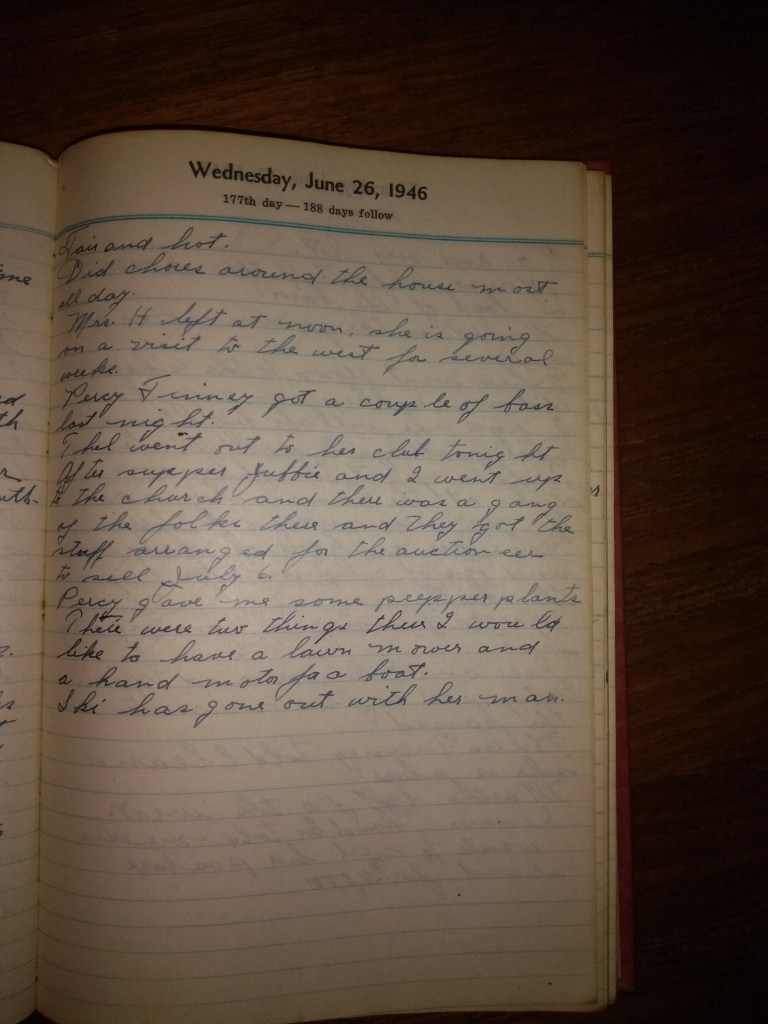 Wednesday, June 26, 1946
177th day — 188 days follow
Fair and hot.
Did chores around the house most
all day.
Mrs. H left at noon, she is going
on a visit to the west for several
weeks.
Percy Finney got a couple of bass
last night.
Thel went out to her club tonight
After supper Jubbie and I went up
to the church and there was a gang
of the folks there and they got the
stuff arranged for the auctioneer
to sell July 6.
Percy gave me some peepper plants
There were two things there I would
like to have a lawn mower and
a hand motor for a boat.
Ski has gone out with her man.